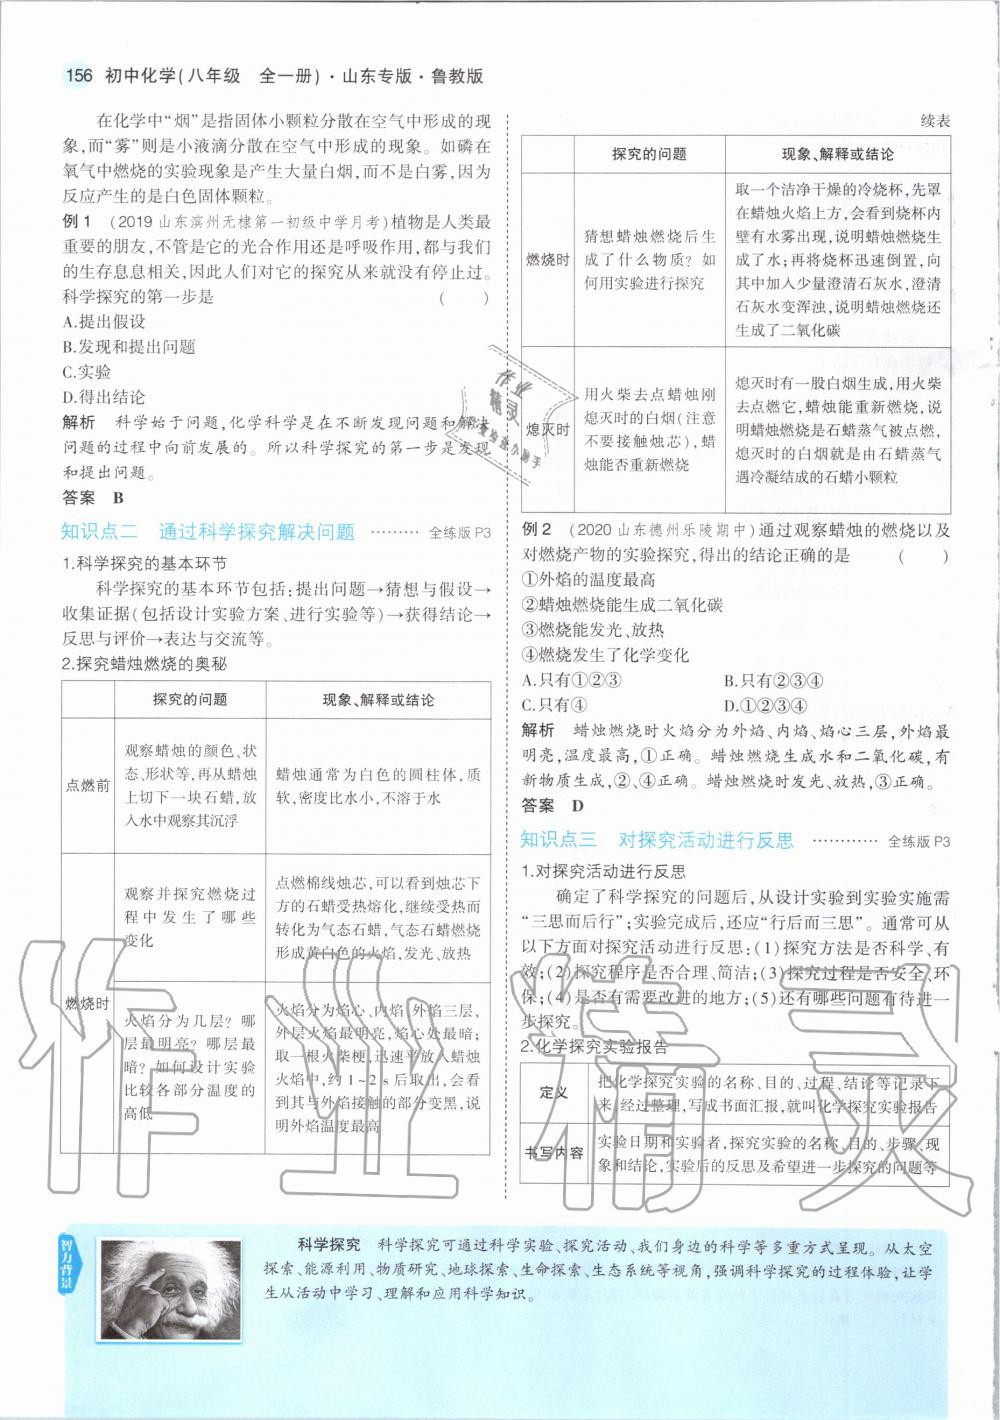 156 初中化学(八年级 全一册)·山东专版·鲁教版
在化学中“烟”是指固体小颗粒分散在空气中形成的现
象,而“雾”则是小液滴分散在空气中形成的现象。如磷在
氧气中燃烧的实验现象是产生大量白烟,而不是白雾,因为
反应产生的是白色固体颗粒。
例1 (2019山东滨州无棣第一初级中学月考)植物是人类最
重要的朋友,不管是它的光合作用还是呼吸作用,都与我们
的生存息息相关,因此人们对它的探究从来就没有停止过。
科学探究的第一步是 ( )
A.提出假设
B.发现和提出问题
C.实验
D.得出结论
解析 科学始于问题,化学科学是在不断发现问题和解决
问题的过程中向前发展的。所以科学探究的第一步是发现
和提出问题。
答案 B
知识点二 通过科学探究解决问题 ……… 全练版P3
1.科学探究的基本环节
科学探究的基本环节包括:提出问题→猜想与假设→
收集证据(包括设计实验方案、进行实验等)→获得结论→
反思与评价→表达与交流等。
2.探究蜡烛燃烧的奥秘
探究的问题 现象、解释或结论
点燃前
观察蜡烛的颜色、状
态、形状等,再从蜡烛
上切下一块石蜡,放
入水中观察其沉浮
蜡烛通常为白色的圆柱体,质
软,密度比水小,不溶于水
燃烧时
观察并探究燃烧过
程中发生了哪些
变化
点燃棉线烛芯,可以看到烛芯下
方的石蜡受热熔化,继续受热而
转化为气态石蜡,气态石蜡燃烧
形成黄白色的火焰,发光、放热
火焰分为几层?哪
层最明亮?哪层最
暗?如何设计实验
比较各部分温度的
高低
火焰分为焰心、内焰、外焰三层,
外层火焰最明亮,焰心处最暗;
取一根火柴梗,迅速平放入蜡烛
火焰中,约1~2 s后取出,会看
到其与外焰接触的部分变黑,说
明外焰温度最高
续表
探究的问题 现象、解释或结论
燃烧时
猜想蜡烛燃烧后生
成了什么物质?如
何用实验进行探究
取一个洁净干燥的冷烧杯,先罩
在蜡烛火焰上方,会看到烧杯内
壁有水雾出现,说明蜡烛燃烧生
成了水;再将烧杯迅速倒置,向
其中加入少量澄清石灰水,澄清
石灰水变浑浊,说明蜡烛燃烧还
生成了二氧化碳
熄灭时
用火柴去点蜡烛刚
熄灭时的白烟(注意
不要接触烛芯),蜡
烛能否重新燃烧
熄灭时有一股白烟生成,用火柴
去点燃它,蜡烛能重新燃烧,说
明蜡烛燃烧是石蜡蒸气被点燃,
熄灭时的白烟就是由石蜡蒸气
遇冷凝结成的石蜡小颗粒
例2 (2020山东德州乐陵期中)通过观察蜡烛的燃烧以及
对燃烧产物的实验探究,得出的结论正确的是 ( )
①外焰的温度最高
②蜡烛燃烧能生成二氧化碳
③燃烧能发光、放热
④燃烧发生了化学变化
A.只有①②③ B.只有②③④
C.只有④ D.①②③④
解析 蜡烛燃烧时火焰分为外焰、内焰、焰心三层,外焰最
明亮,温度最高,①正确。蜡烛燃烧生成水和二氧化碳,有
新物质生成,②、④正确。蜡烛燃烧时发光、放热,③正确。
答案 D
知识点三 对探究活动进行反思 ………… 全练版P3
1.对探究活动进行反思
确定了科学探究的问题后,从设计实验到实验实施需
“三思而后行”;实验完成后,还应“行后而三思”。通常可从
以下方面对探究活动进行反思:(1)探究方法是否科学、有
效;(2)探究程序是否合理、简洁;(3)探究过程是否安全、环
保;(4)是否有需要改进的地方;(5)还有哪些问题有待进一
步探究。
2.化学探究实验报告
定义
把化学探究实验的名称、目的、过程、结论等记录下
来,经过整理,写成书面汇报,就叫化学探究实验报告
书写内容
实验日期和实验者,探究实验的名称、目的、步骤、现
象和结论,实验后的反思及希望进一步探究的问题等
智力背景
科学探究 科学探究可通过科学实验、探究活动、我们身边的科学等多重方式呈现。从太空
探索、能源利用、物质研究、地球探索、生命探索、生态系统等视角,强调科学探究的过程体验,让学
生从活动中学习、理解和应用科学知识。
作业精灵
作业
精灵